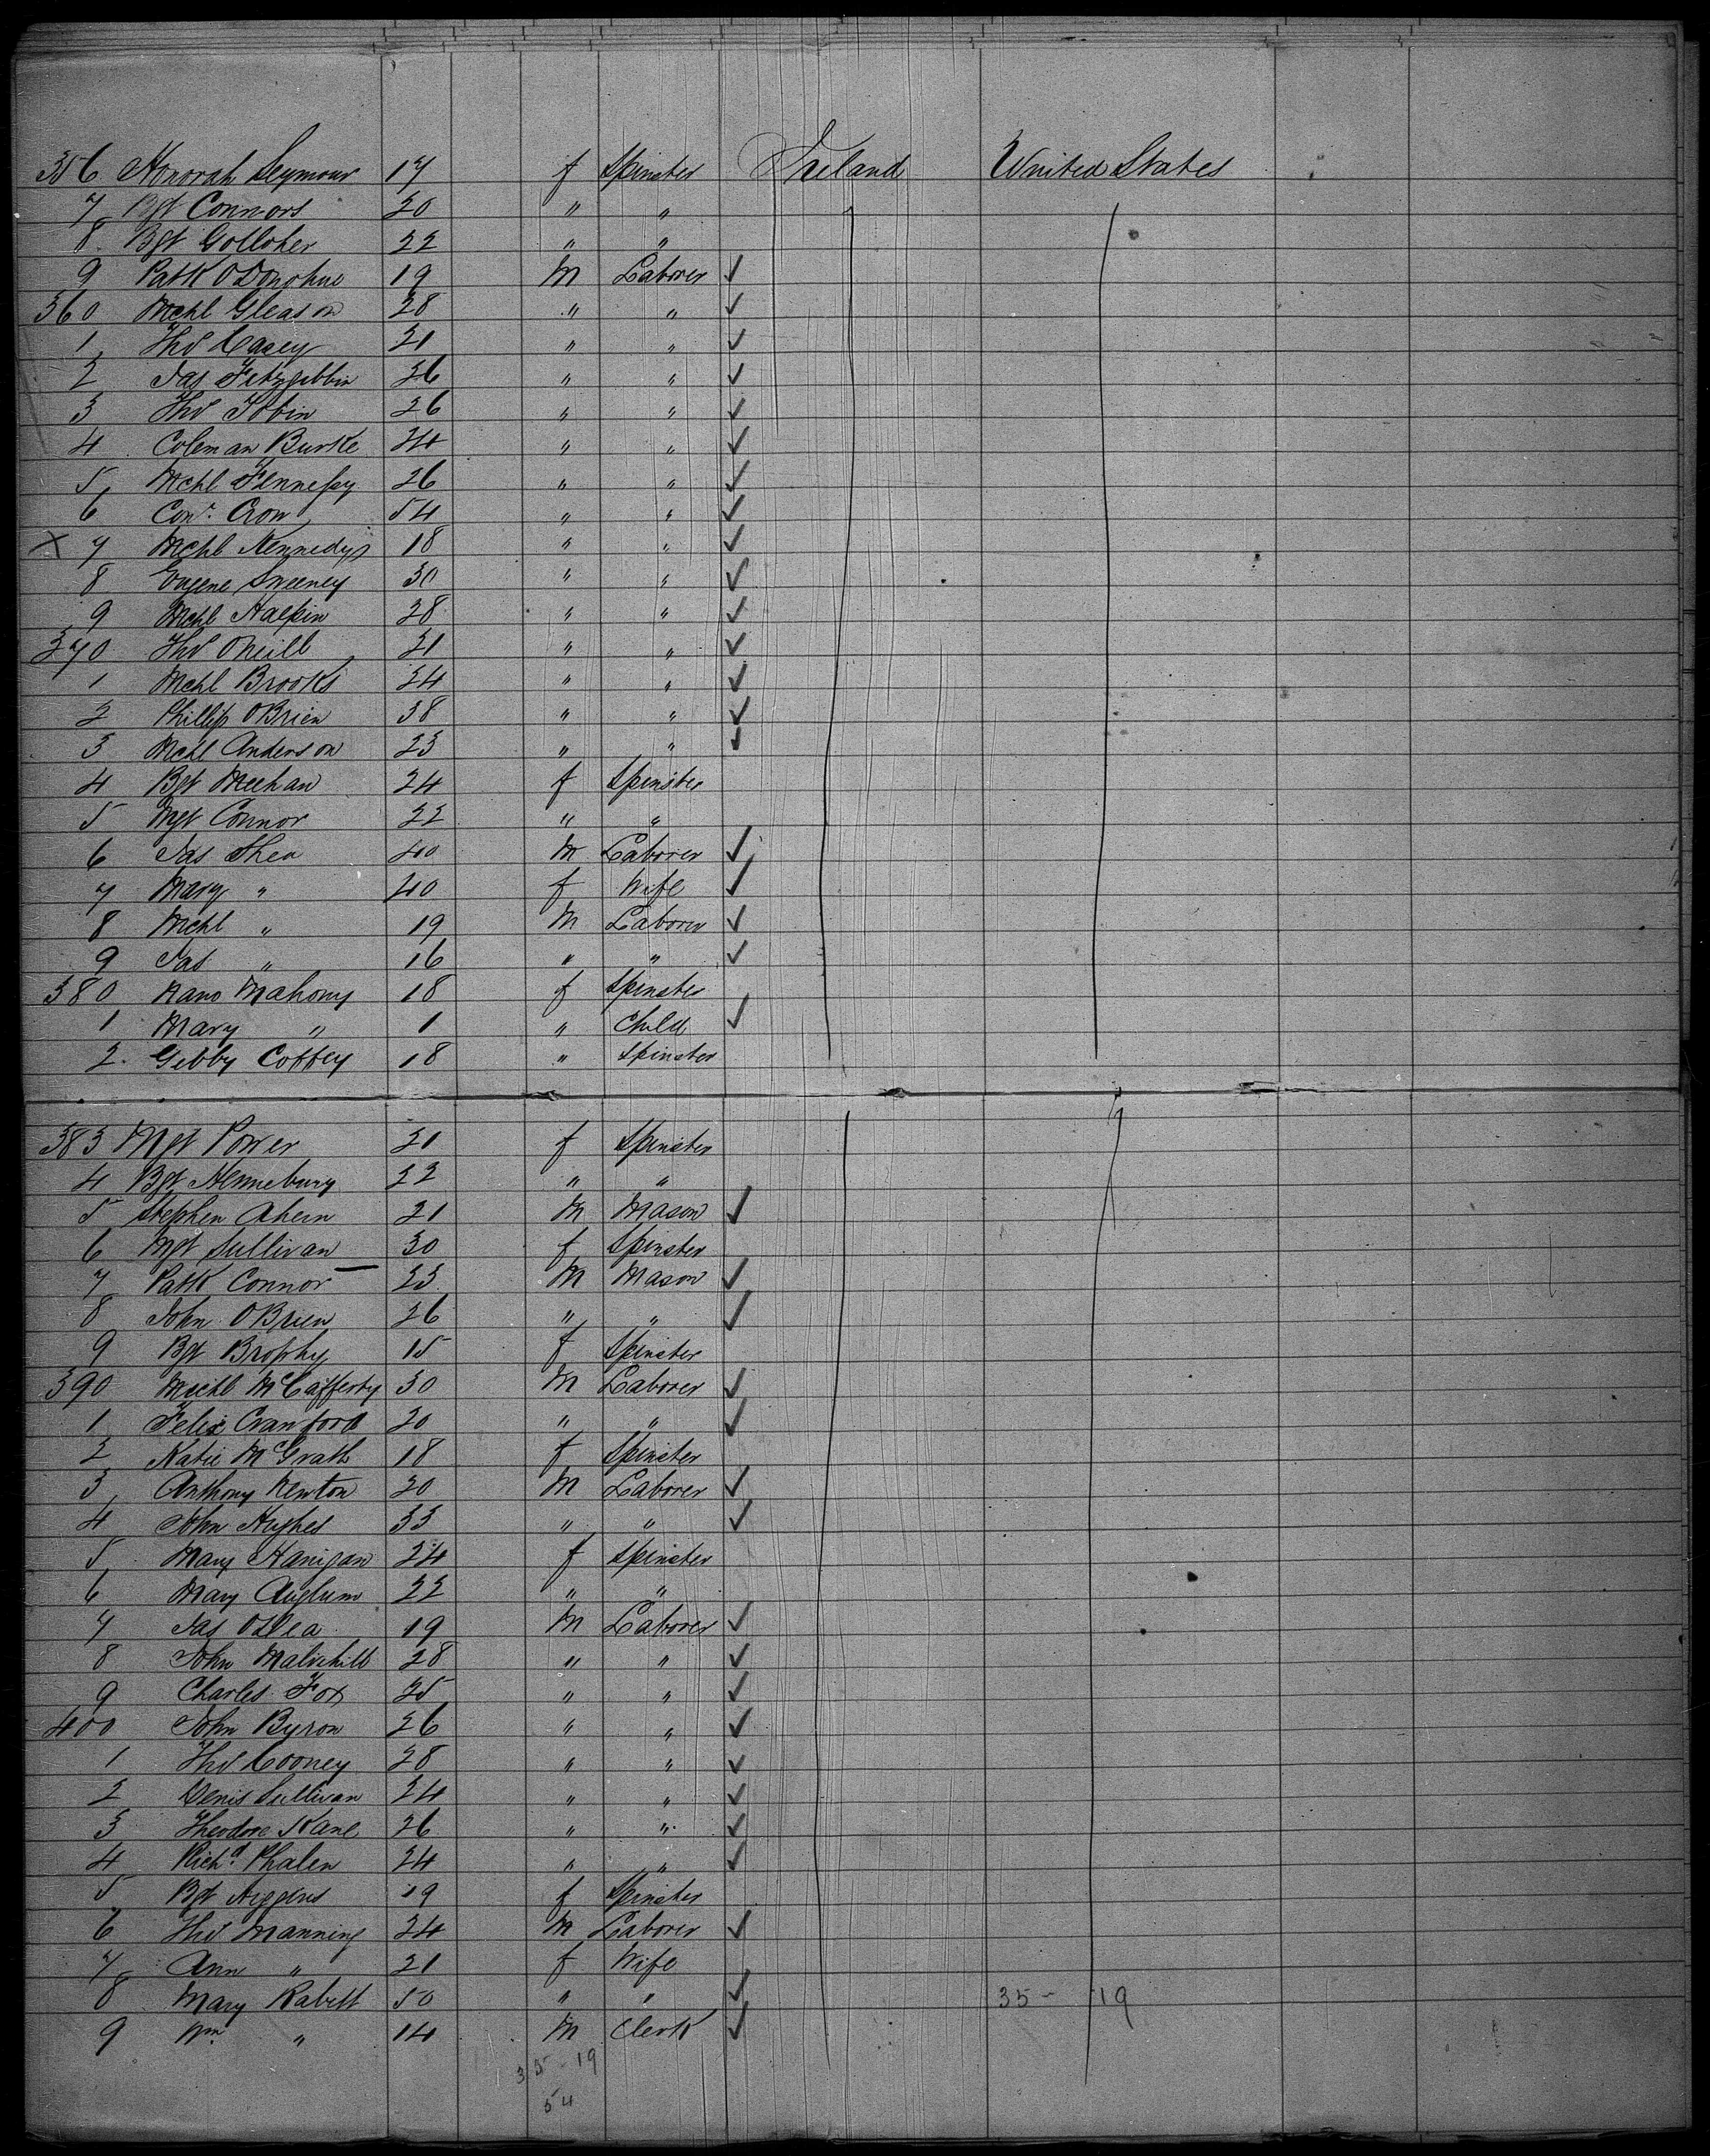 356 Honorah Seymour 17 f Spinster Ireland United States
7 Bgt Connors 20 " "
8 Bgt Golloher 22 " "
9 Patk ODonohue 19 M Laborer ✓
360 Mchl Gleason 28 " " ✓
1 Thos Casey 21 " " ✓
2 Jas Fitzgibbin 26 " " ✓
3 Thos Tobin 26 " " ✓
4 Coleman Burke 24 " " ✓
5 Mchl Fennessy 26 " " ✓
6 Conr. Crow 54 " " ✓
X 7 Mchl Kennedy 18 " " ✓
8 Eugene Sweeney 30 " " ✓
9 Mchl Halpin 28 " " ✓
370 Thos ONeill 21 " " ✓
1 Mchl Brooks 24 " " ✓
2 Phillip OBrien 38 " " ✓
3 Mchl Anderson 23 " " ✓
4 Bgt Meehan 24 f Spinster
5 Mgt Connor 22 " "
6 Jas Shea 40 M Laborer ✓
7 Mary " 40 f Wife ✓
8 Mchl " 19 M Laborer ✓
9 Jas " 16 " " ✓
380 Nano Mahony 18 f Spinster
1 Mary " 1 " Child ✓
2 Gebby Coffey 18 " Spinster
383 Mgt Power 21 f Spinster
4 Bgt Hennebury 22 " "
5 Stephen Ahern 21 M Mason ✓
6 Mgt Sullivan 30 f Spinster
7 Patk Connor 23 M Mason ✓
8 John OBrien 26 " " ✓
9 Bgt Brophy 15 f Spinster
390 Michl McCafferty 30 M Laborer ✓
1 Felix Crawford 20 " " ✓
2 Katie McGrath 18 f Spinster
3 Anthony Newton 20 M Laborer ✓
4 John Hughes 33 " " ✓
5 Mary Hanigan 24 f Spinster
6 Mary 22 " "
7 Jas ODea 19 M Laborer ✓
8 John 28 " " ✓
9 Charles Fox 25 " " ✓
400 John Byron 26 " " ✓
1 Thos Cooney 28 " " ✓
2 Denis Sullivan 24 " " ✓
3 Theodore Kane 26 " " ✓
4 Richd. Phalen 24 " " ✓
5 Bgt Higgins 19 f Spinster
6 Thos Manning 24 M Laborer ✓
7 Ann " 21 f Wife
8 Mary Rabitt 50 " " ✓ 35 - 19
9 Wm " 14 M Clerk ✓
35 - 19
54